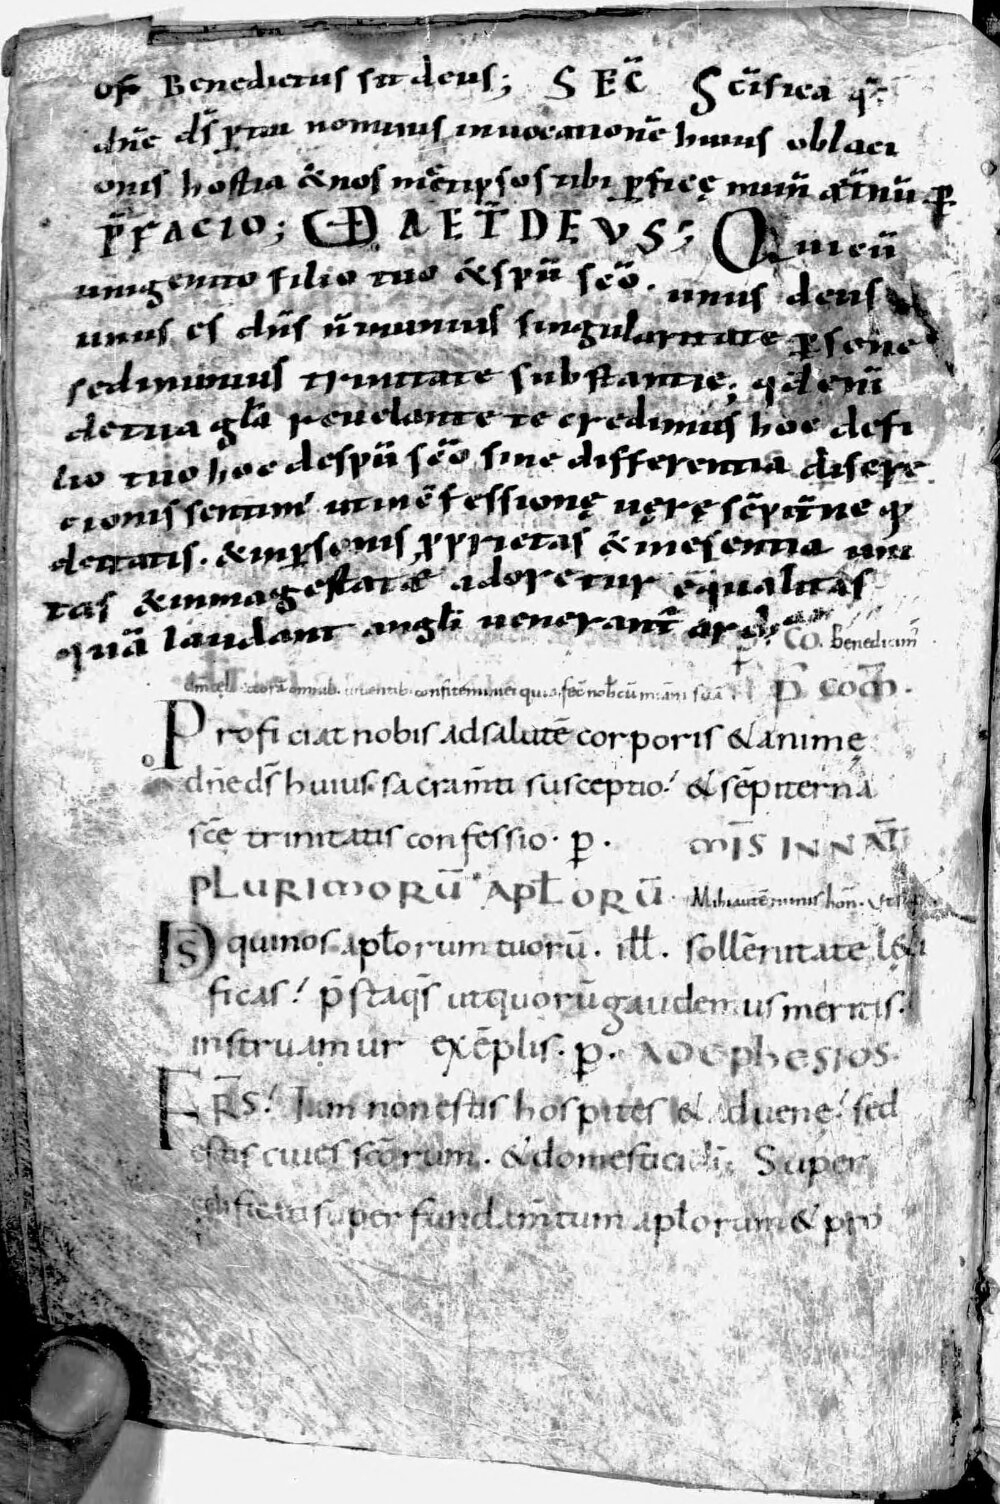 of Benedictus sit deus; SEC̄ Sc̄ifica q̄s
dn̄e ds̄ p̱ tui nominis inuocationē huius oblaci
onis hostia & nos mētipsos tibi p̱fice mun̄ æt̄nū p̱
P̄FACIO; VD AET̄ DEUS; Qui cū
unigenito filio tuo & sp̄ū sc̄ō. unus deus
unus es dn̄s n̄ in unius singularitate p̱sone
sed in unius trinitate substantie; qd̄ enī
de tua gl̄a reuelante te credimus hoc de fi
lio tuo hoc de sp̄ū sc̄ō sine differentia discre
cionis sentim' ut in c̄fessione uere sēpit̄ne q̧
deitatis. & in p̱sonis p̱prietas & in esentia uni
tas & in magestatæ adoretur equalitas
quā laudant angl̄i uenerant̄ ard̄. CO. Benedicim̄
dm̄ celi & corā omnib. uiuentib. confitemini ei quia fec̄ nob̄cū mīam suā P̄ COM̄.
Proficiat nobis ad salutē corporis & anime
dn̄e ds̄ huius sacram̄ti susceptio. & sēpiterna
sc̄e trinitatis confessio. p̱. MIS̄ IN NAT̄
PLURIMORŪ APL̄ORŪ. Mihi autē nimis hon̄.
D̄s qui nos apl̄orum tuorū. ill̄. sollēnitate l&i
ficas. p̄sta q̄s ut quorū gaudemus meritis.
instruamur exēplis. p̱. AD EPHESIOS.
FR̄S. Iam non estis hospites & aduene. sed
estis ciues sc̄orum. & domestici di. Super
edificati super fundam̄tum apl̄orum & pro